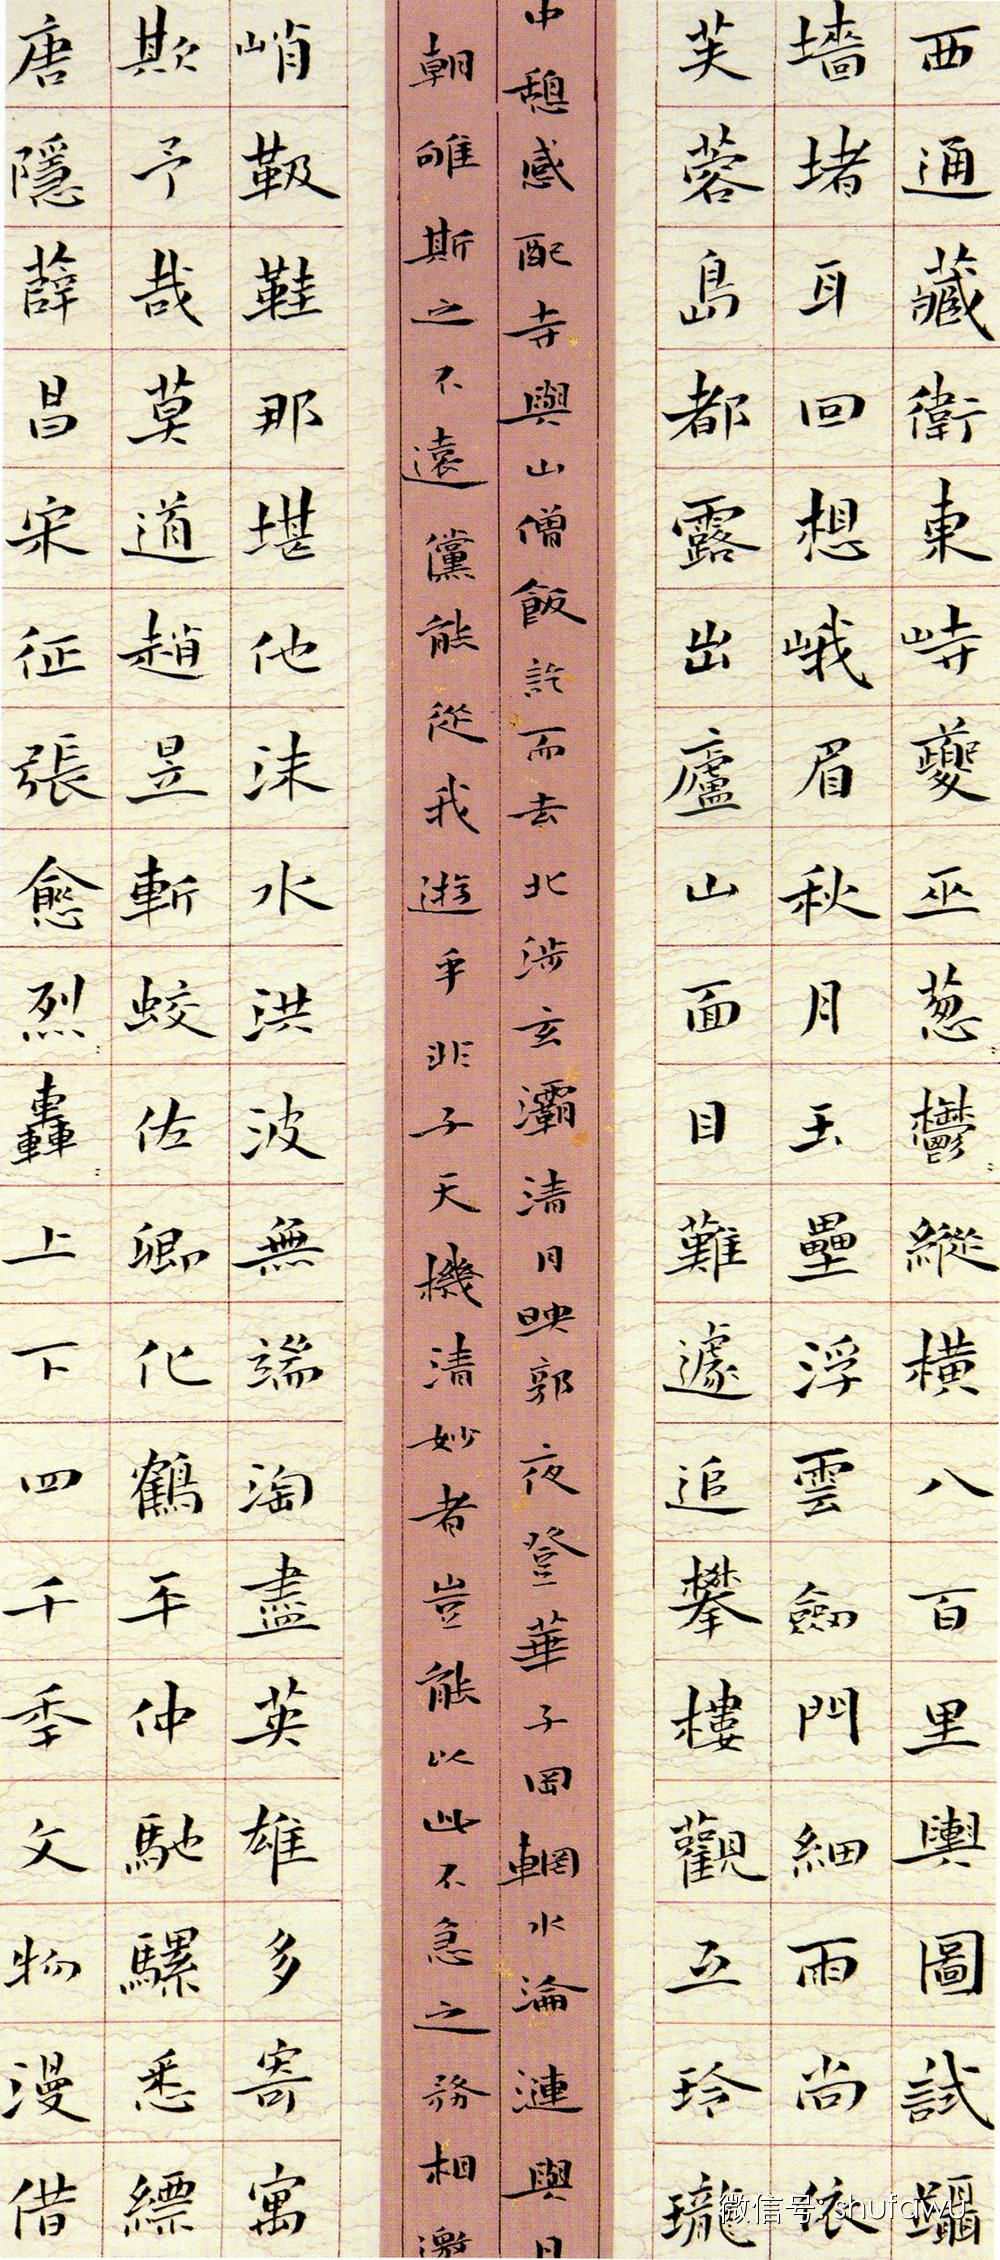 西通藏衛東峙夔巫葱〻鬱〻縱橫八百里輿圖試躡
墻堵耳回想峨眉秋月玉壘浮雲劍門細雨尚依
芙蓉島都露出廬山面目難遽追攀樓觀互玲瓏
中憩感配寺與山僧飯訖而去北涉玄灞清月映郭夜登華子岡輞水淪漣與月
朝雊斯之不遠儻能從我遊乎非子天機清妙者豈能以此不急之務相邀
峭靸鞋那堪他沫水洪波無端淘盡英雄多寄寓
欺予哉莫道趙昱斬蛟佐卿化鶴平仲馳騾悉縹
唐隱薛昌宋征張愈烈〻轟〻上下四千季文物漫借
微信号: shufawu